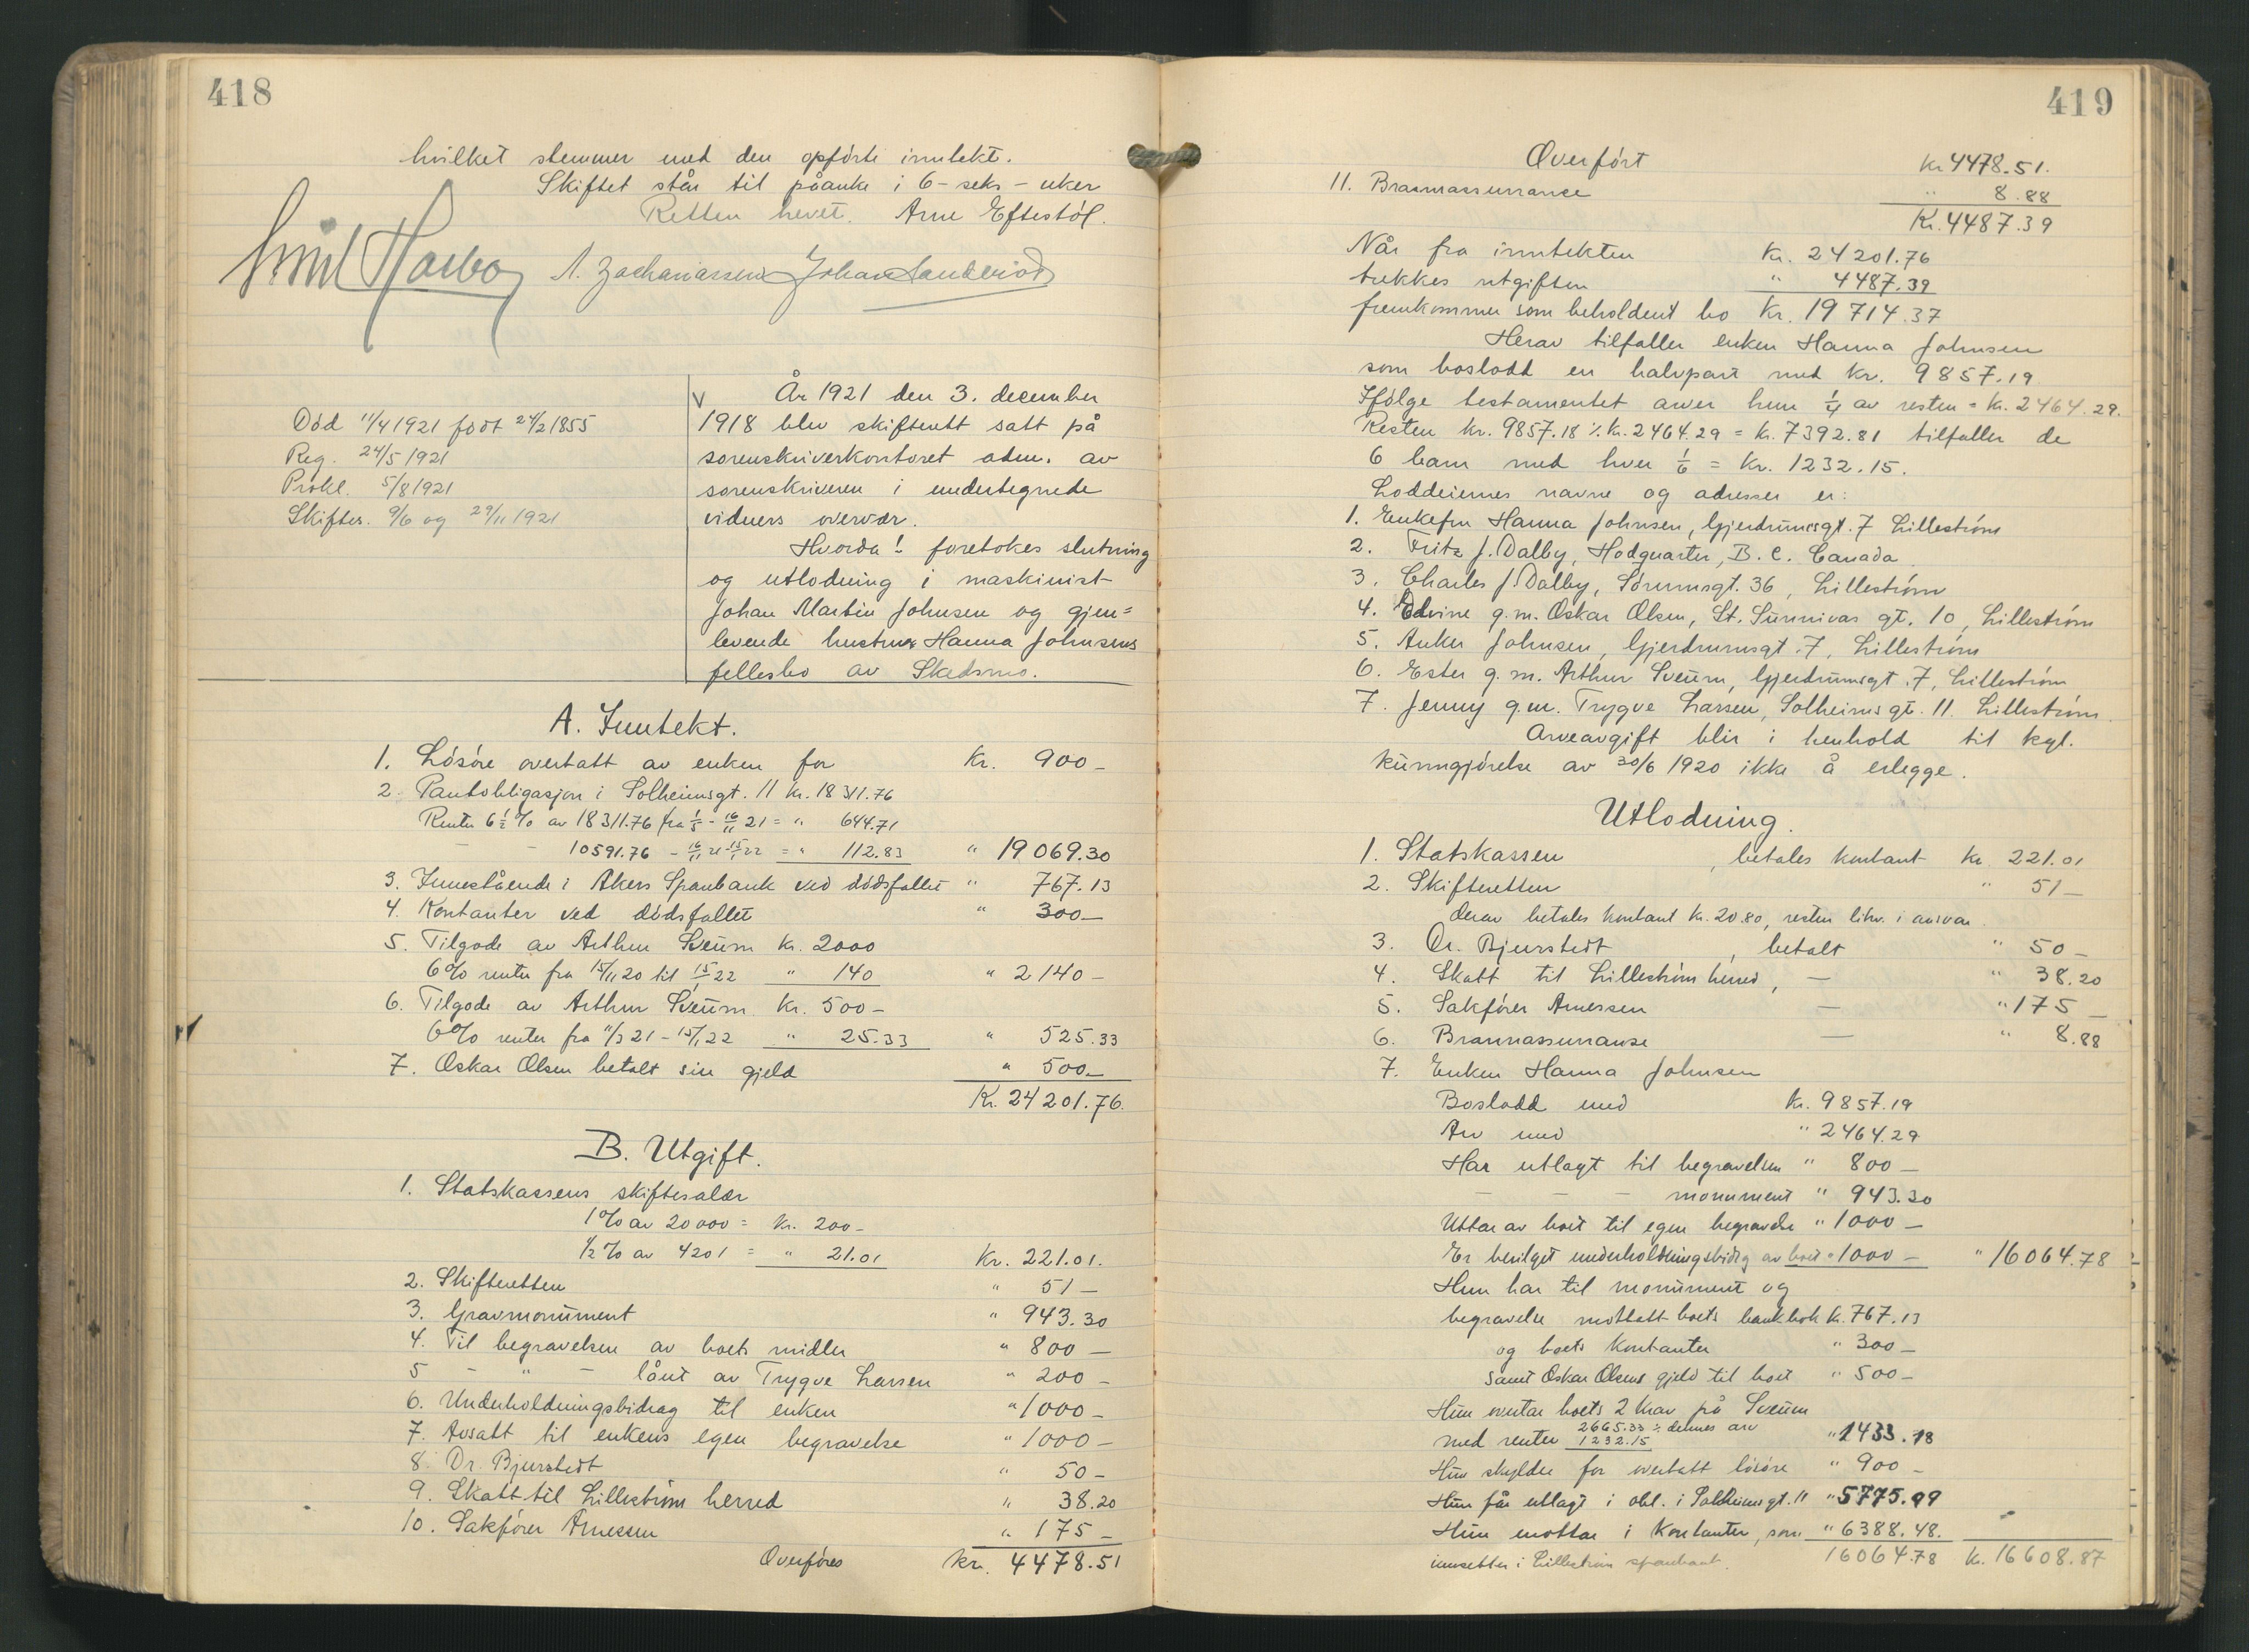 418
hvilket stemmer med den opførte inntekt.
Skiftet står til påanke i 6 - seks - uker
Retten hevet. Arne Eftestøl.
A. Zachariassen Johan
Død 11/4 1921 født 24/2 1855
Reg. 24/5 1921
Prokl. 5/8 1921
Skiftes. 9/6 og 29/11 1921
År 1921 den 3. december
1918 blev skifterett satt på
sorenskriverkontoret adm. av
sorenskriveren i undertegnede
vidners overvær.
Hvorda! foretokes slutning
og utlodning i maskinist
Johan Martin Johnsen og gjen=
levende hustru Hanna Johnsens
fellesbo av Skedsmo.
A. Inntekt.
1. Løsøre overtatt av enken for Kr. 900 -
2. Pantobligasjon i Solheimsgt. 11 kr. 18 311.76
Renter 6 1/2 % av 18311.76 fra 1/5 - 16/11 21 = " 644.71
- - 10591.76 - 16/11 21 - 15/1 22 = " 112.83 " 19 069.30
3. Innestående i Akers Sparebank ved dødsfallet " 767.13
4. Kontanter ved dødsfallet " 300 -
5. Tilgode av Arthur Sveum kr. 2000
6% renter fra 15/11 20 til 15/1 22 " 140 " 2140 -
6. Tilgode av Arthur Sveum Kr. 500 -
6% renter fra 11/3 21 - 15/1 22 " 25.33 " 525.33
7. Oskar Olsen betalt sin gjeld " 500 -
Kr. 24 201.76.
B. Utgift.
1. Statskassens skiftesalær
1% av 20 000 = Kr. 200 -
1/2 % av 4201 = " 21.01 Kr. 221.01.
2. Skifteretten " 51 -
3. Gravmonument " 943.30
4. Til begravelsen av boets midler " 800 -
5 - " - lånt av Trygve Larsen " 200 -
6. Underholdningsbidrag til enken " 1000 -
7. Avsatt til enkens egen begravelse " 1000 -
8. Dr. Bjurstedt " 50 -
9. Skatt til Lillestrøm herred " 38.20
10. Sakfører Arnessen " 175 -
Overføres kr. 4478.51
419
Overført Kr 4478.51.
11. Brannassurranse " 8.88
Kr. 4487.39
Når fra inntekten Kr. 24 201.76
trekkes utgiften " 4487.39
fremkommer som beholdent bo Kr. 19 714.37
Herav tilfaller enken Hanna Johnsen
som boslodd en halvpart med Kr. 9857.19
Ifølge testamentet arver hun 1/4 av resten = Kr. 2464.29.
Resten kr. 9857.18 ÷ Kr. 2464.29 = Kr. 7392.81 tilfaller de
6 barn med hver 1/6 = Kr. 1232.15.
Loddeiernes navne og adresser er:
1. Enkefru Hanna Johnsen, Gjerdrumsgt. 7 Lillestrøm
2. Fritz J. Dalby, Hodquarter, B. C. Canada
3. Charles J. Dalby, Sørumsgt. 36, Lillestrøm
4. Edvine g. m. Oskar Olsen, St. Sunnivas gt. 10, Lillestrøm
5. Anker Johnsen, Gjerdrumsgt. 7, Lillestrøm
6. Ester g. m. Arthur Sveum, Gjerdrumsgt. 7, Lillestrøm
7. Jenny g. m. Trygve Larsen, Solheimsgt. 11. Lillestrøm.
Arveavgift blir i henhold til kgl.
kunngjørelse av 30/6 1920 ikke å erlegge.
Utlodning.
1. Statskassen, betales kontant Kr. 221.01
2. Skifteretten " 51 -
derav betales kontant Kr. 20.80, resten likv. i ansvar.
3. Dr. Bjurstedt, betalt " 50 -
4. Skatt til Lillestrøm herred, - " 38.20
5. Sakfører Arnessen - " 175 -
6. Brannassurranse - " 8.88
7. Enken Hanna Johnsen
Boslodd med Kr. 9857.19
Arv med " 2464.29
Har utlagt til begravelsen " 800 -
- - - monument " 943.30
Uttar av boet til egen begravelse " 1000 -
Er bevilget underholdningsbidrag av boet " 1000 - " 16064.78
Hun har til monument og
begravelse mottatt boets bankbok Kr. 767.13
og boets kontanter " 300 -
samt Oskar Olsens gjeld til boet " 500 -
Hun overtar boets 2 krav på Sveum
med renter 2665.33 ÷ dennes arv 1232.15 " 1433.18
Hun skylder for overtatt løsøre " 900 -
Hun får utlagt i obl. i Solheimsgt. 11 " 5775.99
Hun mottar i kontanter, som " 6388.48.
innsettes i Lillestrøm sparebank. 16064.78 Kr. 16608.87